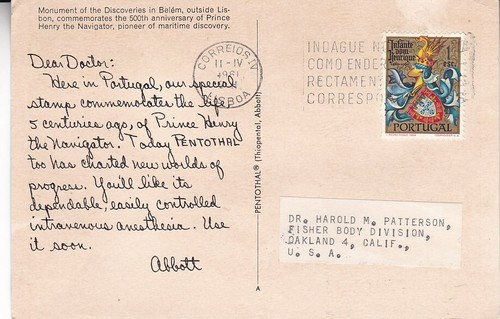 Monument of the Discoveries in Belém, outside Lis-
bon, commemorates the 500th anniversary of Prince
Henry the Navigator, pioneer of maritime discovery.
Dear Doctor:
Here in Portugal, our special
stamp commemolates the life,
5 centuries ago, of Prince Henry
the Navigator. Today PENTOTHAL
too has charted new worlds of
progress. You'll like its
dependable, easily controlled
intravenous anesthesia. Use
it soon.
Abbott
PENTOTHAL® (Thiopental, Abbott)
A
CORREIOS-IV
11-IV
1961
LISBOA
INDAGUE
COMO ENDE
RECTAMENT
CORRESPO
Infante
dom
Henrique
1
esc.
PORTUGAL
DR. HAROLD M. PATTERSON,
FISHER BODY DIVISION,
OAKLAND 4, CALIF.,
U. S. A.